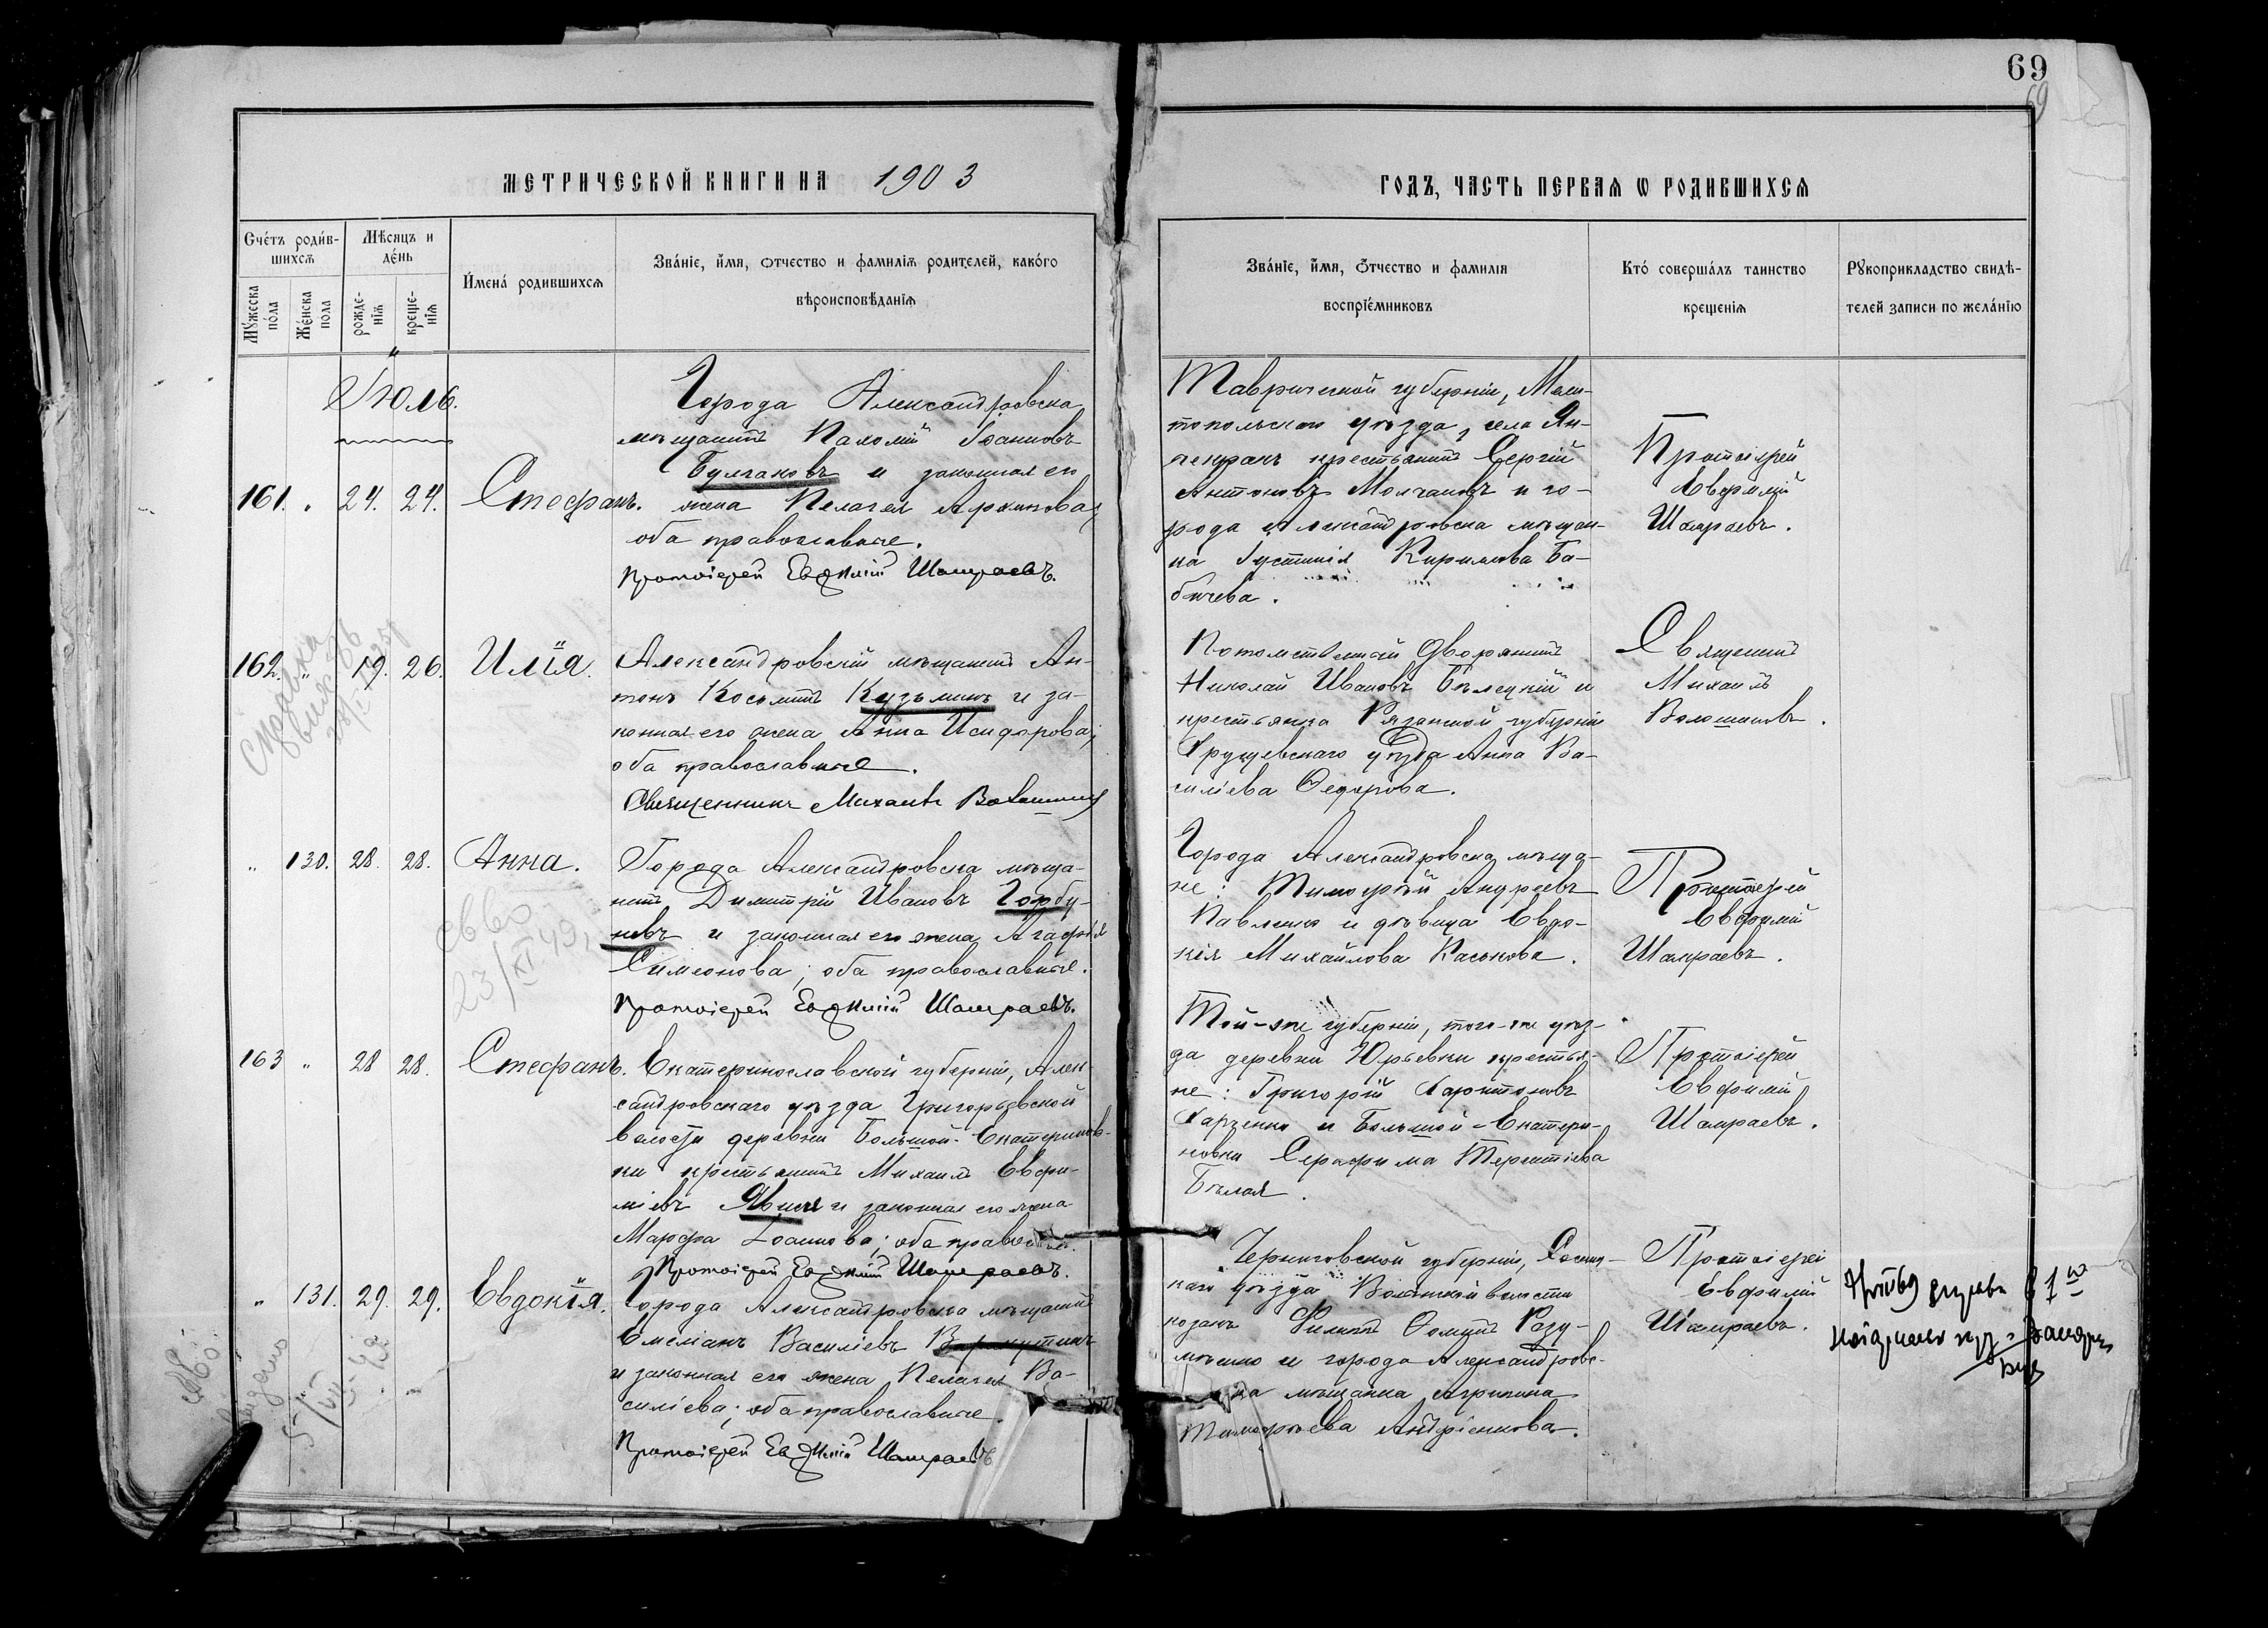 69
69
МЕТРИЧЕСКОЙ КНИГИ НА 1903
ГОДЪ, ЧАСТЬ ПЕРВАѦ Ѡ РОДИВШИХСѦ
Счётъ родив-
шихсѧ
Мѣсяцъ и
дéнь
Мужеска
пола
Женска
пола
рожде-
нія
креще-
нія
Имена́ родившихсѧ
Зва́ніе, имя, отчество и фамилія родителей, како́го
вѣроисповѣданія
Зва́ніе, имя, отчество и фамилія
воспріе́мниковъ
Кто́ совершáлъ таинство
крещенія
Рукоприкладство свидѣ-
телей записи по жела́нію
Іюль.
161. " 24. 24. Стефанъ.
Города Александровска
мѣщанинъ Пахомій Іоанновъ
Булгаковъ и законная его
жена Пелагея Архипова,
оба православные.
Протоіерей Евѳимій Шамраевъ.
Таврической губерніи, Мели-
топольскаго уѣзда, села Ян-
чекракъ крестьянинъ Сергій
Антоновъ Молчановъ и го-
рода Александровска мѣщан-
ка Іустинія Кириллова Ба-
бичева.
Протоіерей
Евфимій
Шамраевъ.
162. " 19. 26. Илія.
Александровскій мѣщанинъ Ан-
тонъ Косьминъ Кузьминъ и за-
конная его жена Анна Исидорова;
оба православные.
Священникъ Михаилъ Волошиновъ
Потомственный дворянинъ
Николай Ивановъ Бѣлецкій и
крестьянка Рязанской губерніи
уѣзда Анна Ва-
силіева Ѳедорова.
Священникъ
Михаилъ
Волошиновъ.
справка
" 130. 28. 28. Анна.
Города Александровска мѣща-
нинъ Димитрій Ивановъ Горбу-
новъ и законная его жена Агафія
Симеонова; оба православные.
Протоіерей Евѳимій Шамраевъ.
Города Александровска мѣща-
не: Тимоѳей Андреевъ
Павленко и дѣвица Евдо-
кія Михайлова Каськова.
Протоіерей
Евфимій
Шамраевъ.
23/XI
163 " 28 28. Стефанъ.
Екатеринославской губерніи, Алек-
сандровскаго уѣзда Григорьевской
волости деревни Большой-Екатеринов-
ки крестьянинъ Михаилъ Евфи-
міевъ и законная его жена
Марфа Іоаннова; оба правосл.
Протоіерей Евѳимій Шамраевъ.
Той-же губерніи, того-же уѣз-
да деревни Юрьевки крестья-
не: Григорій Харитоновъ
Харченко и Большой-Екатери-
новки Серафима Терентіева
Бѣлая.
Протоіерей
Евфимій
Шамраевъ.
" 131. 29. 29. Евдокія.
Города Александровска мѣщанинъ
Емеліанъ Василіевъ
и законная его жена Пелагея Ва-
силіева; оба православные.
Протоіерей Евѳимій Шамраевъ
Черниговской губерніи, Сосниц-
каго уѣзда волости
козакъ Филиппъ Ѳоминъ Разу-
мѣнко и города Александровс-
ка мѣщанка Агрипина
Тимофѣева Андріенкова.
Протоіерей
Евфимій
Шамраевъ.